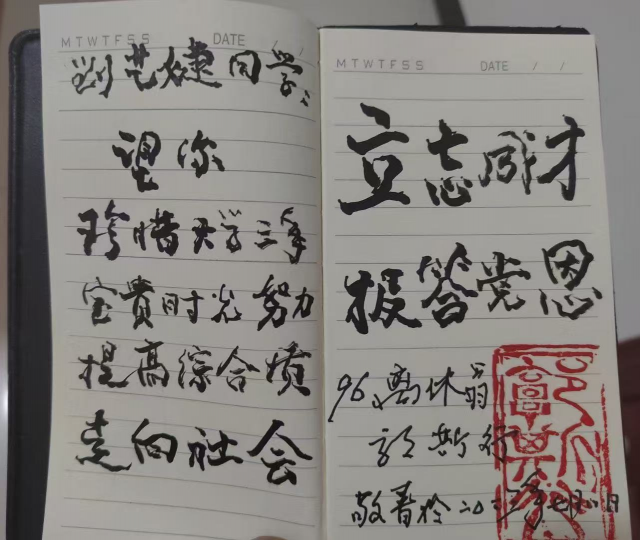 MTWTFSS DATE / /
刘艺婕同学:
望你
珍惜大学三年
宝贵时光努力
提高综合质
走向社会
MTWTFSS DATE / /
立志成才
报答党恩
96离休翁
郭斯行
敬书於二〇二三年七月八日